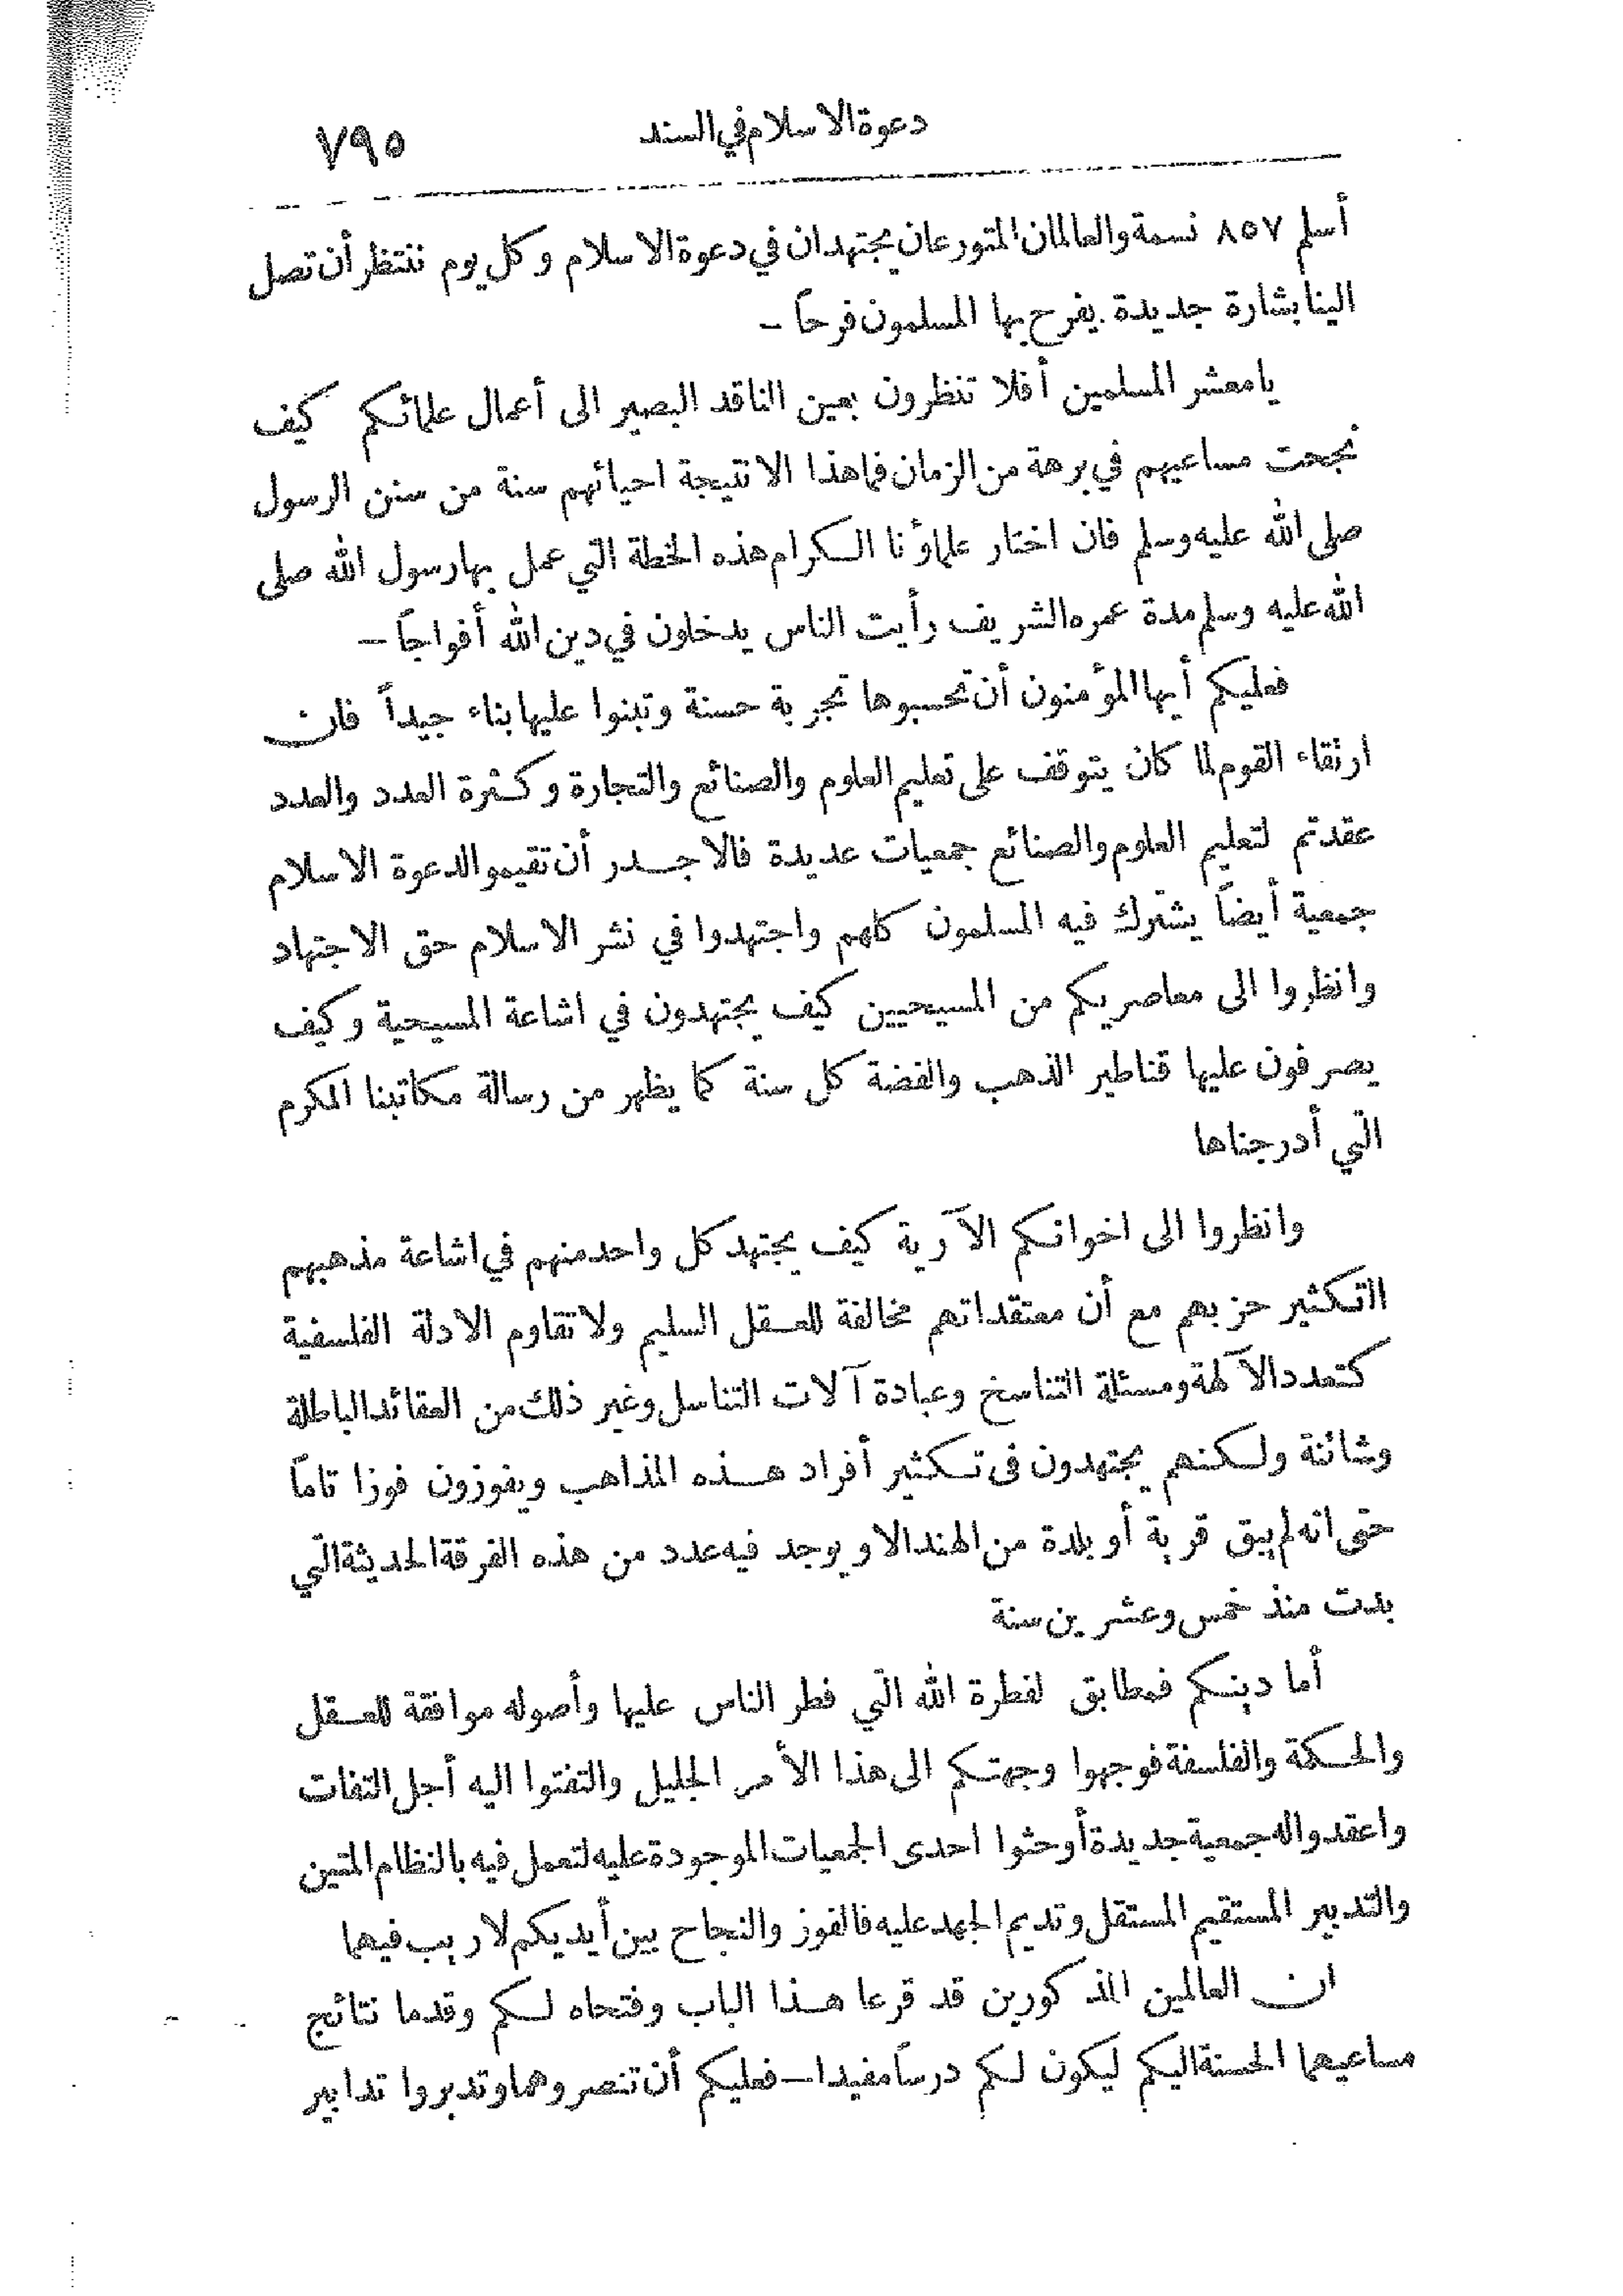 دعوة الاسلام في السند ٧٩٥
أسلم ٨٥٧ نسمة والعالمان المتورعان يجتهدان في دعوة الاسلام وكل يوم ننتظر أن تصل
الينا بشارة جديدة يفرح بها المسلمون فرحاً –
يا معشر المسلمين أفلا تنظرون بعين الناقد البصير الى أعمال علمائكم كيف
نجحت مساعيهم في برهة من الزمان فما هذا الا نتيجة احيائهم سنة من سنن الرسول
صلى الله عليه وسلم فان اختار علماؤنا الكرام هذه الخطة التي عمل بها رسول الله صلى
الله عليه وسلم مدة عمره الشريف رأيت الناس يدخلون في دين الله أفواجاً –
فعليكم أيها المؤمنون أن تحسبوها تجربة حسنة وتبنوا عليها بناء جيداً فان
ارتقاء القوم لما كان يتوقف على تعليم العلوم والصنائع والتجارة وكثرة العدد والعدد
عقدتم لتعليم العلوم والصنائع جمعيات عديدة فالاجدر أن تقيموا لدعوة الاسلام
جمعية أيضاً يشترك فيه المسلمون كلهم واجتهدوا في نشر الاسلام حق الاجتهاد
وانظروا الى معاصريكم من المسيحيين كيف يجتهدون في اشاعة المسيحية وكيف
يصرفون عليها قناطير الذهب والفضة كل سنة كما يظهر من رسالة مكاتبنا المكرم
التي أدرجناها
وانظروا الى اخوانكم الآرية كيف يجتهد كل واحد منهم في اشاعة مذهبهم
التكثير حزبهم مع أن معتقداتهم مخالفة للعقل السليم ولا تقاوم الادلة الفلسفية
كتعدد الآلهة ومسئلة التناسخ وعبادة آلات التناسل وغير ذلك من العقائد الباطلة
وشائنة ولكنهم يجتهدون فى تكثير أفراد هذه المذاهب ويفوزون فوزا تاماً
حتى انه لم يبق قرية أو بلدة من الهند الا ويوجد فيه عدد من هذه الفرقة الحديثة التي
بدت منذ خمس وعشرين سنة
أما دينكم فمطابق لفطرة الله التي فطر الناس عليها وأصوله موافقة للعقل
والحكمة والفلسفة فوجهوا وجهتكم الى هذا الأمر الجليل والتفتوا اليه أجل التفات
واعقدوا له جمعية جديدة أو حثوا احدى الجمعيات الموجودة عليه لتعمل فيه بالنظام المتين
والتدبير المستقيم المستقل وتديم الجهد عليه فالفوز والنجاح بين أيديكم لا ريب فيهما
ان العالمين المذكورين قد قرعا هذا الباب وفتحاه لكم وقدما نتائج
مساعيهما الحسنة اليكم ليكون لكم درساً مفيدا – فعليكم أن تنصروهما وتدبروا تدابير